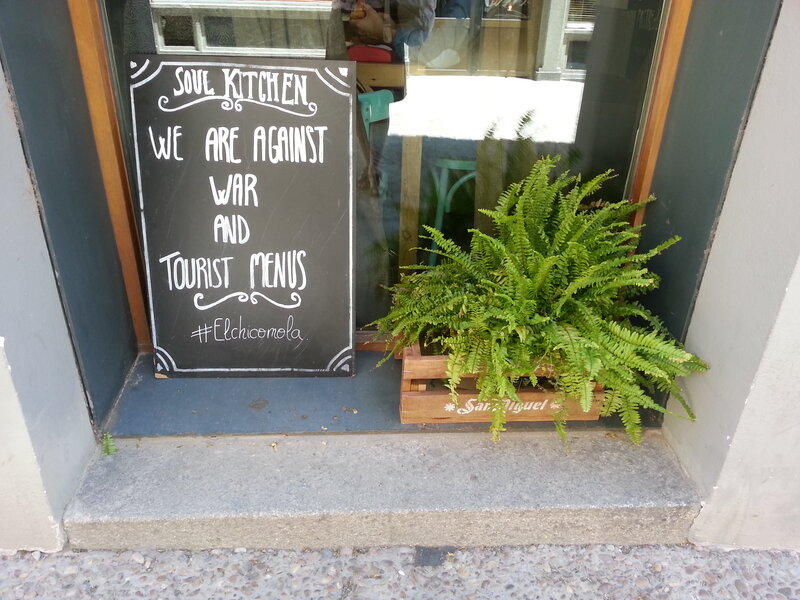 SOUL KITCHEN
WE ARE AGAINST
WAR
AND
TOURIST MENUS
#Elchicomola
San Miguel